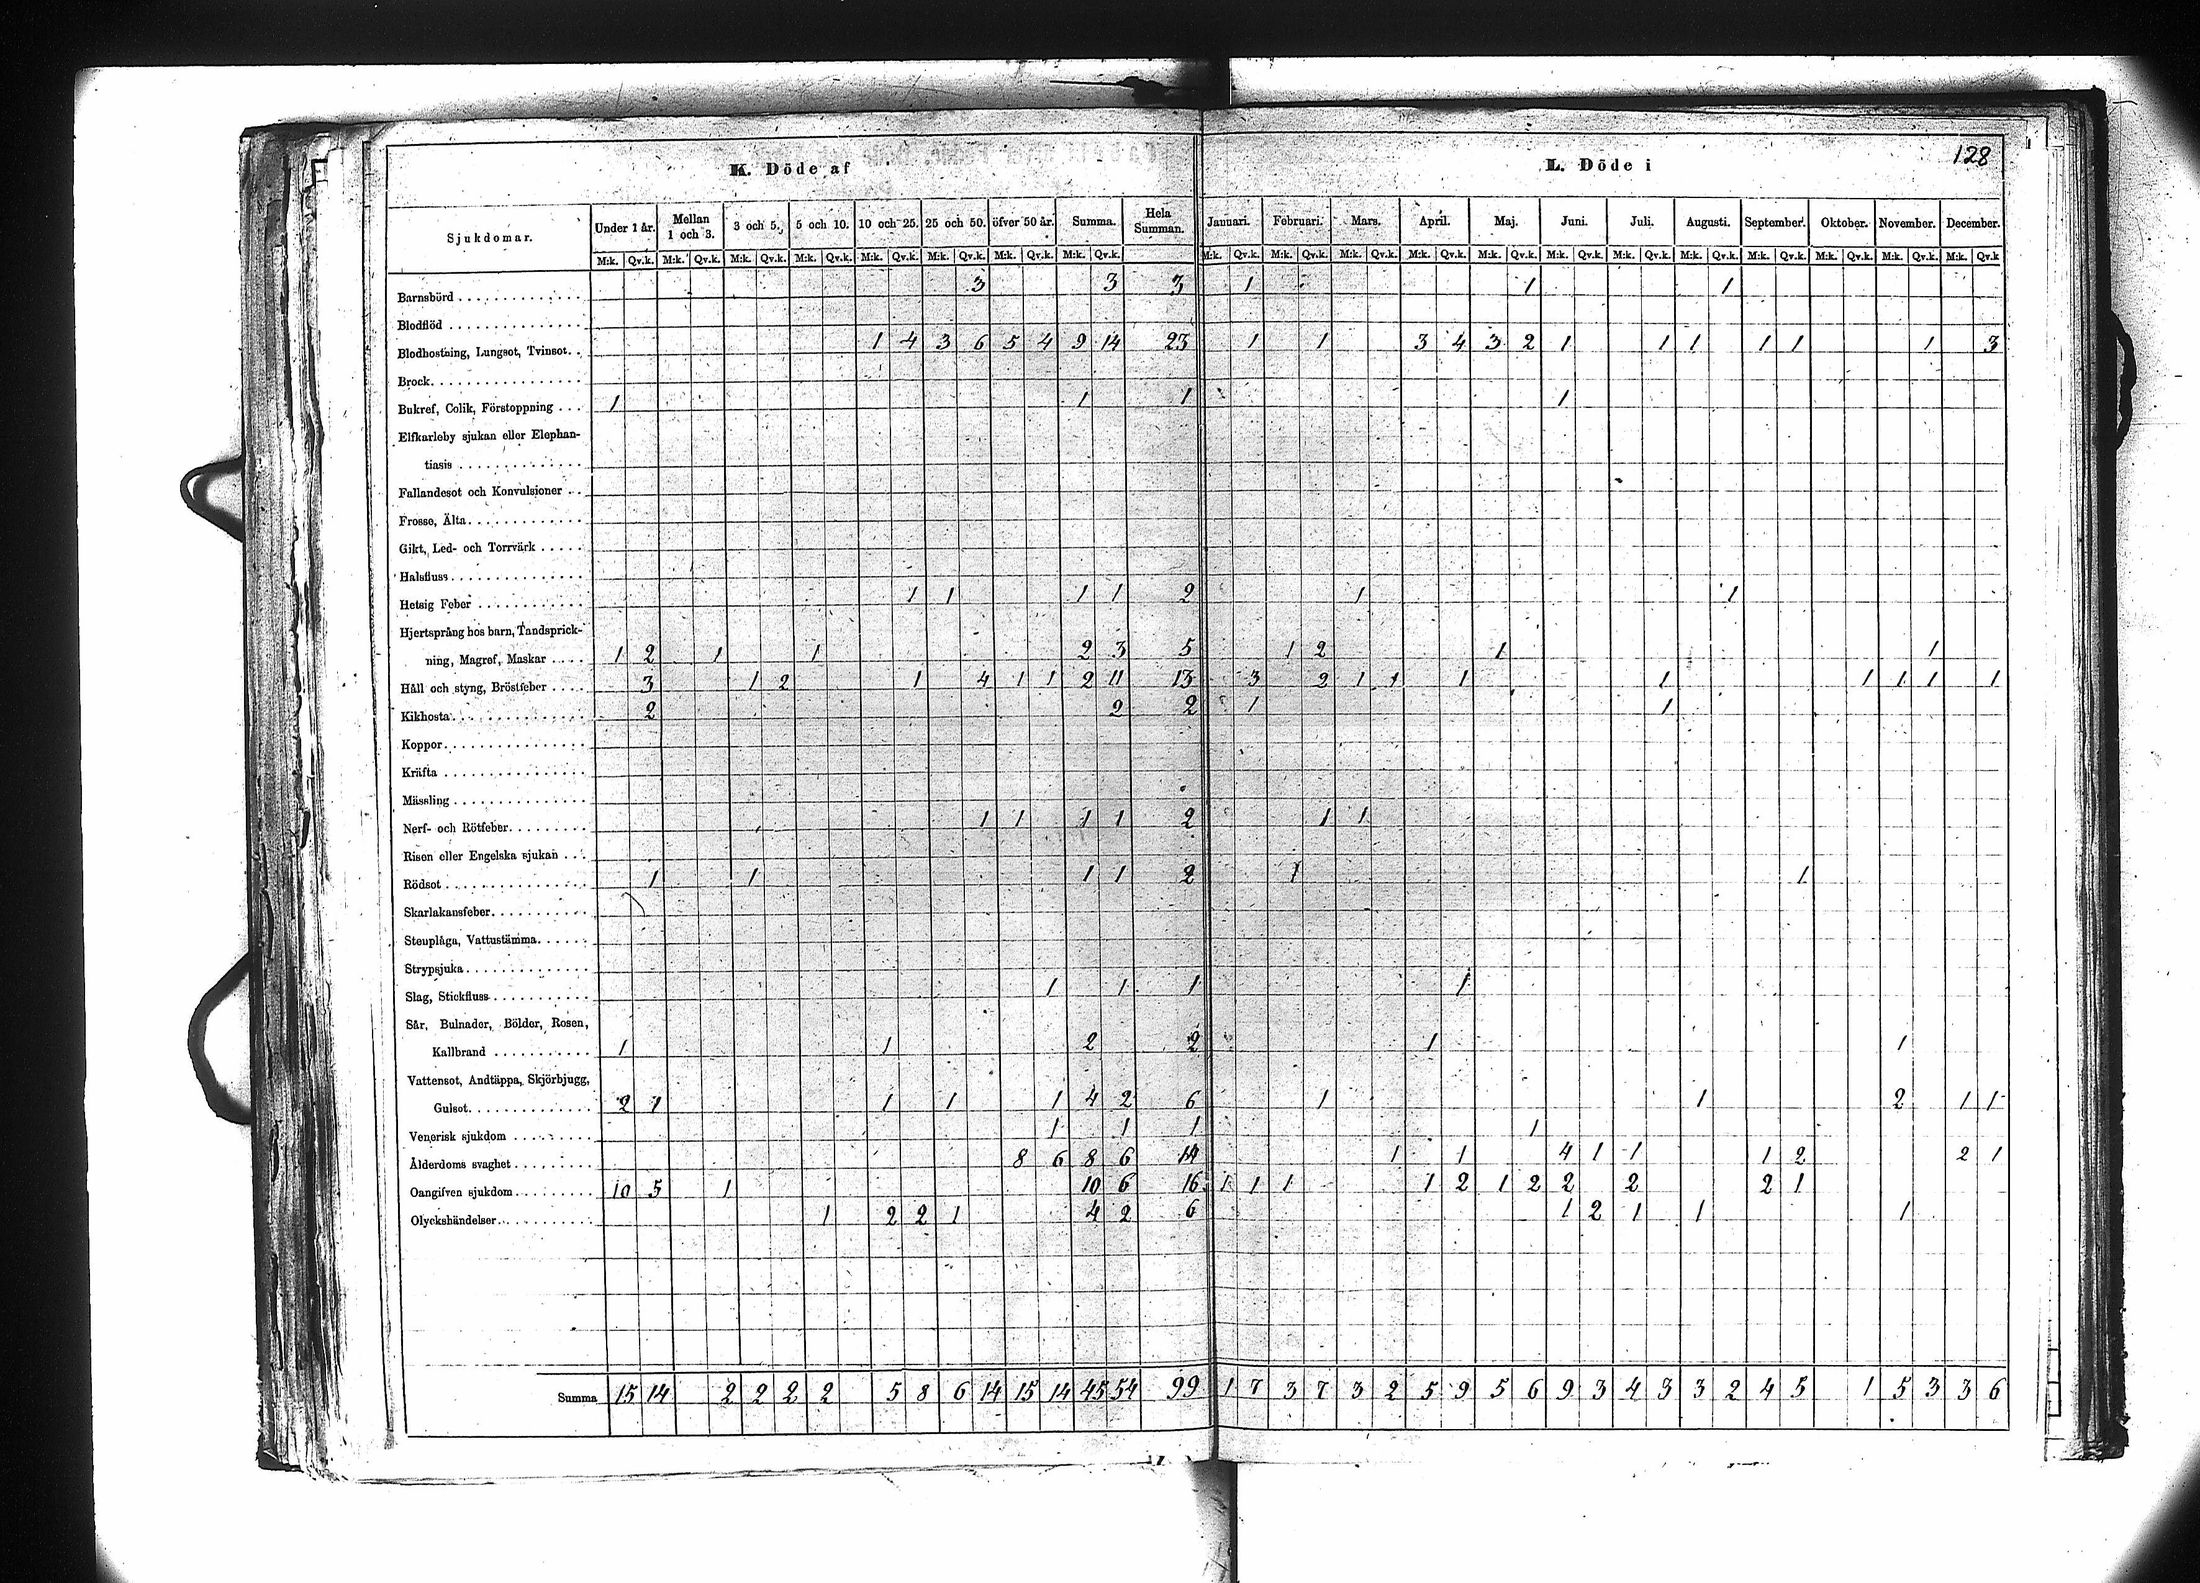 K. Döde af
L. Döde i
128
Sjukdomar. Under 1 år. Mellan 1 och 3. 3 och 5. 5 och 10. 10 och 25. 25 och 50. öfver 50 år. Summa. Hela Summan. Januari. Februari. Mars. April. Maj. Juni. Juli. Augusti. September. Oktober. November. December.
M:k. Qv.k. M:k. Qv.k. M:k. Qv.k. M:k. Qv.k. M:k. Qv.k. M:k. Qv.k. M:k. Qv.k. M:k. Qv.k. M:k. Qv.k. M:k. Qv.k. M:k. Qv.k. M:k. Qv.k. M:k. Qv.k. M:k. Qv.k. M:k. Qv.k. M:k. Qv.k. M:k. Qv.k. M:k. Qv.k. M:k. Qv.k. M:k. Qv.k
Barnsbörd 3 3 3 1 1 1
Blodflöd
Blodhostning, Lungsot, Tvinsot. 1 4 3 6 5 4 9 14 23 1 1 3 4 3 2 1 1 1 1 1 1 3
Brock
Bukref, Colik, Förstoppning 1 1 1 1
Elfkarleby sjukan eller Elephan-
tiasis
Fallandesot och Konvulsioner
Frosse, Älta
Gikt, Led- och Torrvärk
Halsfluss
Hetsig Feber 1 1 1 1 2 1 1
Hjertsprång hos barn, Tandsprick-
ning, Magref, Maskar 1 2 1 1 2 3 5 1 2 1 1
Håll och styng, Bröstfeber 3 1 2 1 4 1 1 2 11 13 3 2 1 1 1 1 1 1 1 1
Kikhosta 2 2 2 1 1
Koppor
Kräfta
Mässling
Nerf- och Rötfeber 1 1 1 1 2 1 1
Risen eller Engelska sjukan
Rödsot 1 1 1 1 2 1 1
Skarlakansfeber
Stenplåga, Vattustämma
Strypsjuka
Slag, Stickfluss 1 1 1 1
Sår, Bulnader, Bölder, Rosen,
Kallbrand 1 1 2 2 1 1
Vattensot, Andtäppa, Skjörbjugg,
Gulsot 2 1 1 1 1 4 2 6 1 1 2 1 1
Venerisk sjukdom 1 1 1 1
Ålderdoms svaghet 8 6 8 6 14 1 1 4 1 1 1 2 2 1
Oangifven sjukdom 10 5 1 10 6 16 1 1 1 1 2 1 2 2 2 2 1
Olyckshändelser 1 2 2 1 4 2 6 1 2 1 1 1
Summa 15 14 2 2 2 2 5 8 6 14 15 14 45 54 99 1 7 3 7 3 2 5 9 5 6 9 3 4 3 3 2 4 5 1 5 3 3 6